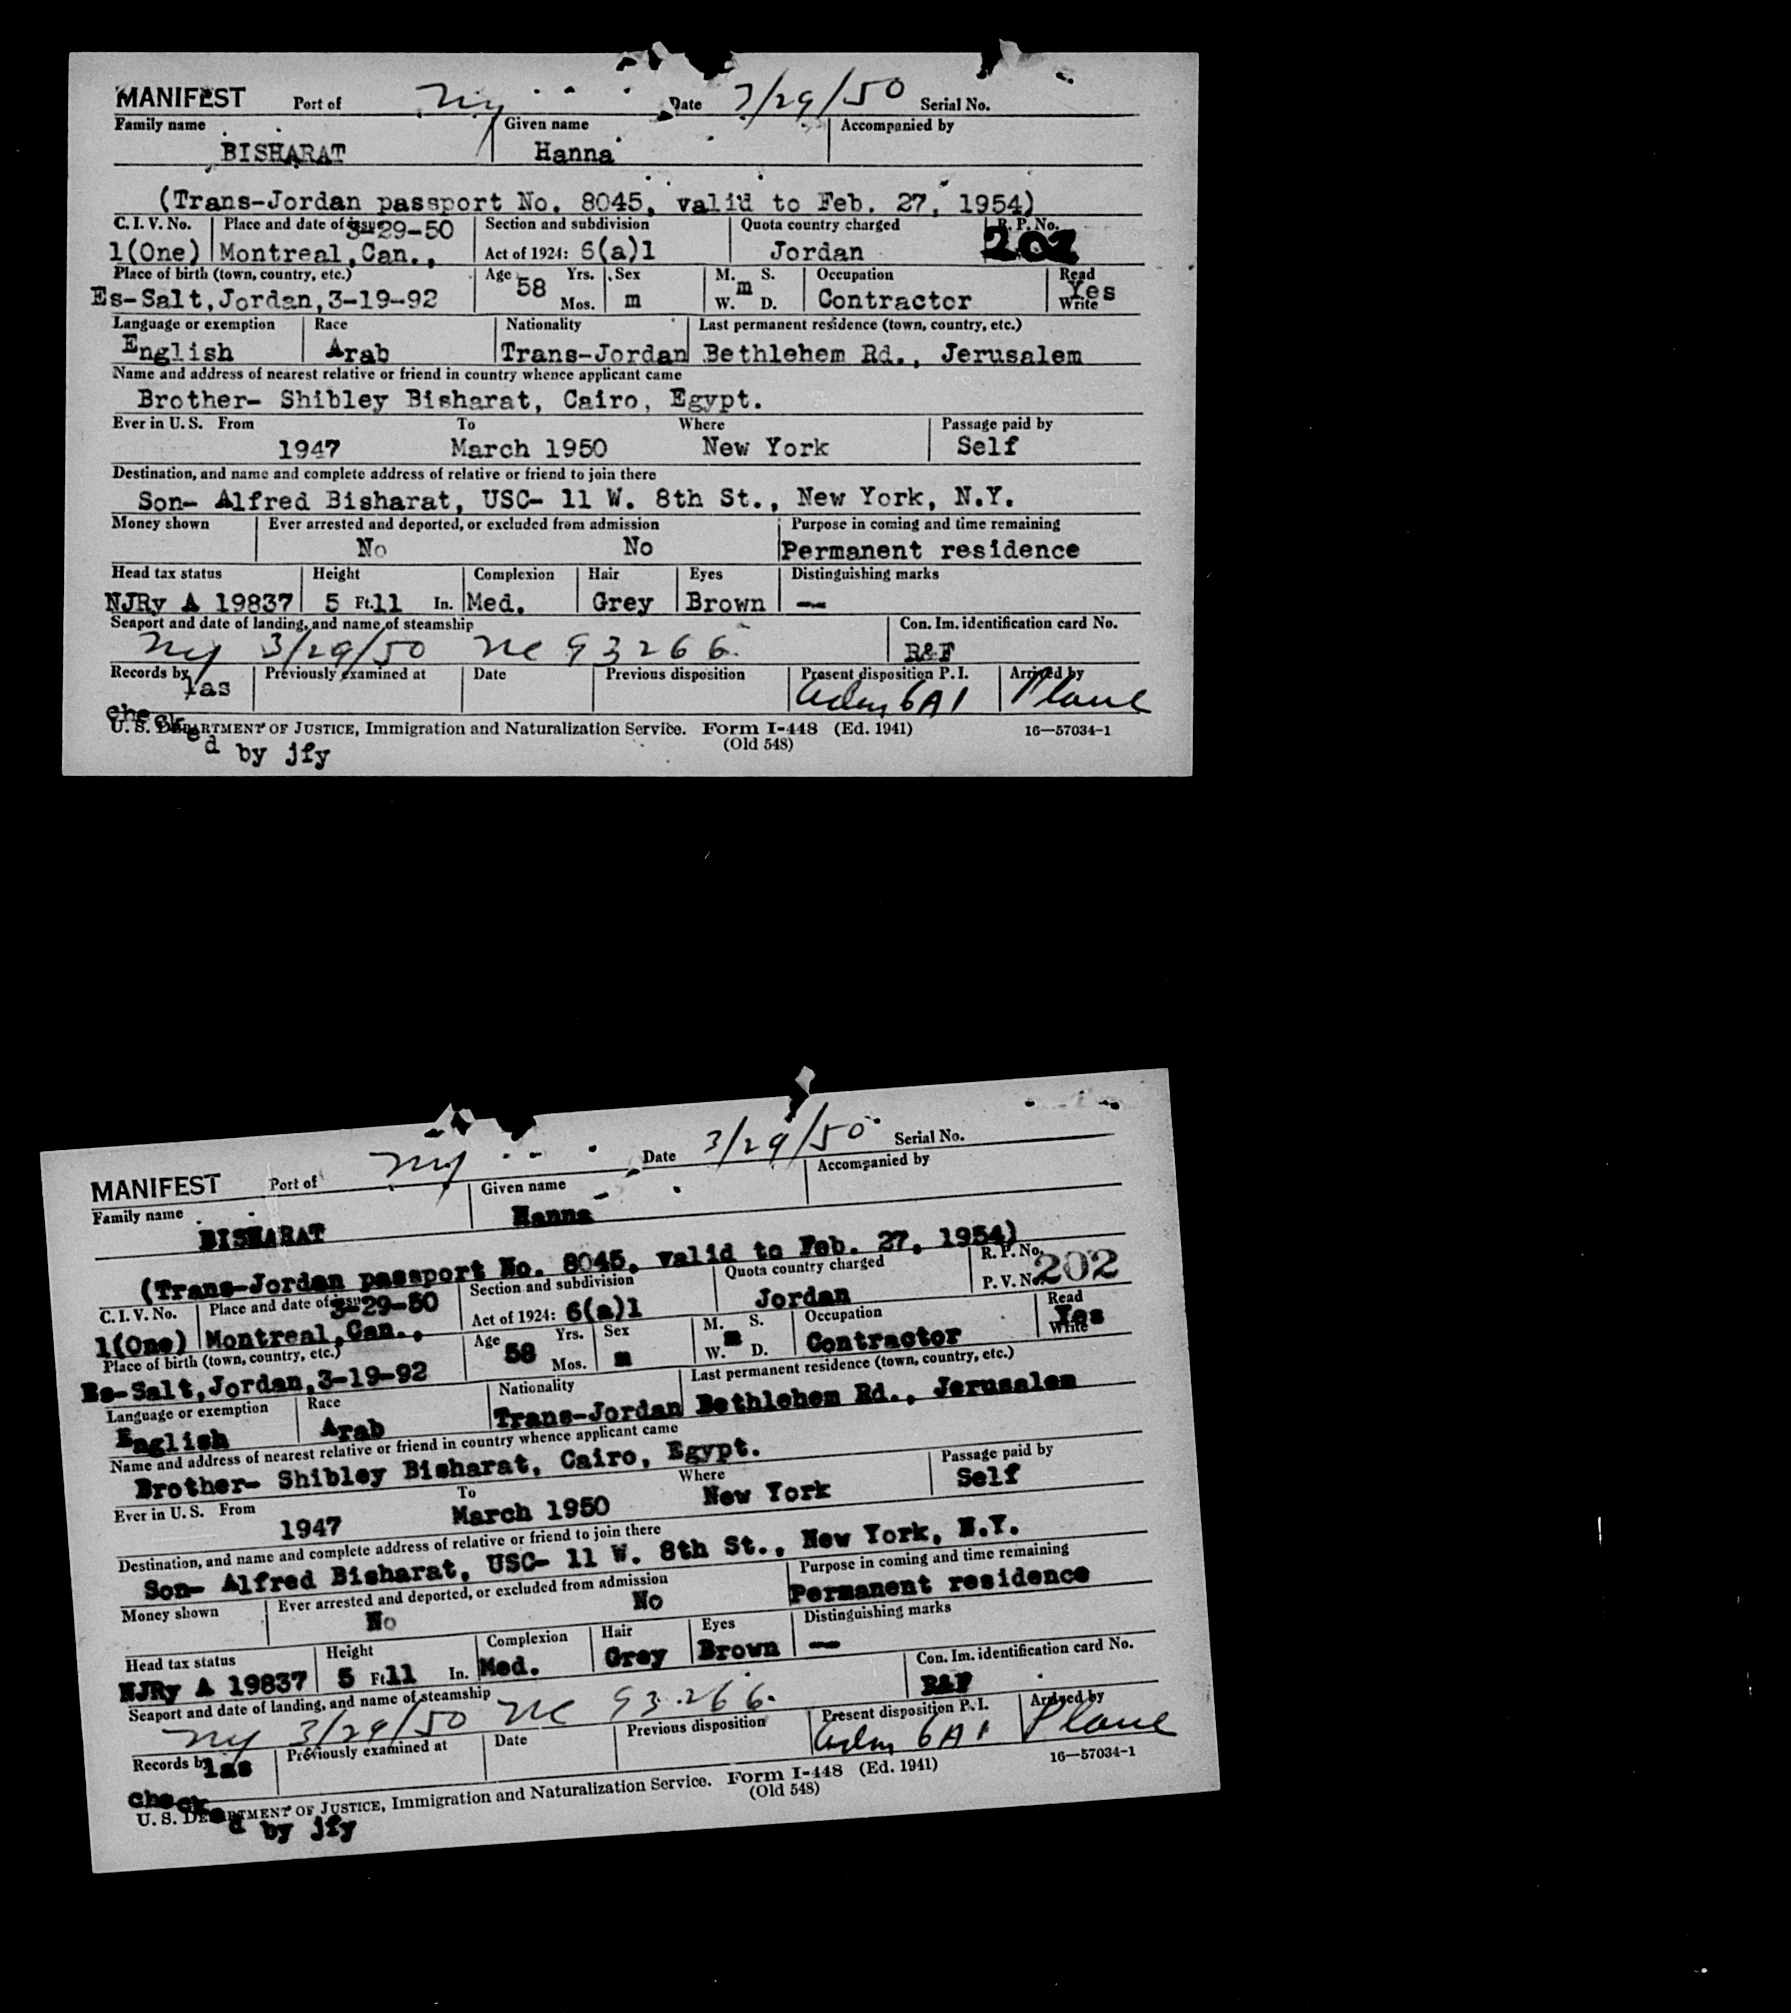 MANIFEST Port of NY Date 3/29/50 Serial No.
Family name Given name Accompanied by
BISHARAT Hanna
(Trans-Jordan passport No. 8045, valid to Feb. 27, 1954)
C. I. V. No. Place and date of issue 3-29-50 Section and subdivision Quota country charged R. P. No.
1(One) Montreal,Can., Act of 1924: 6(a)1 Jordan 202
Place of birth (town, country, etc.) Age Yrs. Sex M. S. Occupation Read
Es-Salt,Jordan,3-19-92 58 Mos. m m W. D. Contractor Yes Write
Language or exemption Race Nationality Last permanent residence (town, country, etc.)
English Arab Trans-Jordan Bethlehem Rd., Jerusalem
Name and address of nearest relative or friend in country whence applicant came
Brother- Shibley Bisharat, Cairo, Egypt.
Ever in U. S. From To Where Passage paid by
1947 March 1950 New York Self
Destination, and name and complete address of relative or friend to join there
Son- Alfred Bisharat, USC- 11 W. 8th St., New York, N.Y.
Money shown Ever arrested and deported, or excluded from admission Purpose in coming and time remaining
No No Permanent residence
Head tax status Height Complexion Hair Eyes Distinguishing marks
NJRy A 19837 5 Ft. 11 In. Med. Grey Brown --
Seaport and date of landing, and name of steamship Con. Im. identification card No.
NY 3/29/50 NC 93266 R&F
Records by Previously examined at Date Previous disposition Present disposition P. I. Arrived by
las Adm 6A1 Plane
checked
U. S. DEPARTMENT OF JUSTICE, Immigration and Naturalization Service. Form I-448 (Ed. 1941) 16—57034-1
(Old 548)
by jfy
MANIFEST Port of NY Date 3/29/50 Serial No.
Family name Given name Accompanied by
BISHARAT Hanna
(Trans-Jordan passport No. 8045, valid to Feb. 27, 1954)
C. I. V. No. Place and date of issue 3-29-50 Section and subdivision Quota country charged R. P. No.
P. V. No. 202
1(One) Montreal,Can., Act of 1924: 6(a)1 Jordan
Place of birth (town, country, etc.) Age Yrs. Sex M. S. Occupation Read
Es-Salt,Jordan,3-19-92 58 Mos. m m W. D. Contractor Yes Write
Language or exemption Race Nationality Last permanent residence (town, country, etc.)
English Arab Trans-Jordan Bethlehem Rd., Jerusalem
Name and address of nearest relative or friend in country whence applicant came
Brother- Shibley Bisharat, Cairo, Egypt.
Ever in U. S. From To Where Passage paid by
1947 March 1950 New York Self
Destination, and name and complete address of relative or friend to join there
Son- Alfred Bisharat, USC- 11 W. 8th St., New York, N.Y.
Money shown Ever arrested and deported, or excluded from admission Purpose in coming and time remaining
No No Permanent residence
Head tax status Height Complexion Hair Eyes Distinguishing marks
NJRy A 19837 5 Ft. 11 In. Med. Grey Brown --
Seaport and date of landing, and name of steamship Con. Im. identification card No.
NY 3/29/50 NC 93266 R&F
Records by Previously examined at Date Previous disposition Present disposition P. I. Arrived by
las Adm 6A1 Plane
checked
U. S. DEPARTMENT OF JUSTICE, Immigration and Naturalization Service. Form I-448 (Ed. 1941) 16—57034-1
(Old 548)
by jfy